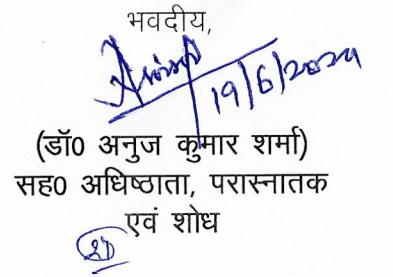 भवदीय,
19/6/2024
(डॉ0 अनुज कुमार शर्मा)
सह0 अधिष्ठाता, परास्नातक
एवं शोध